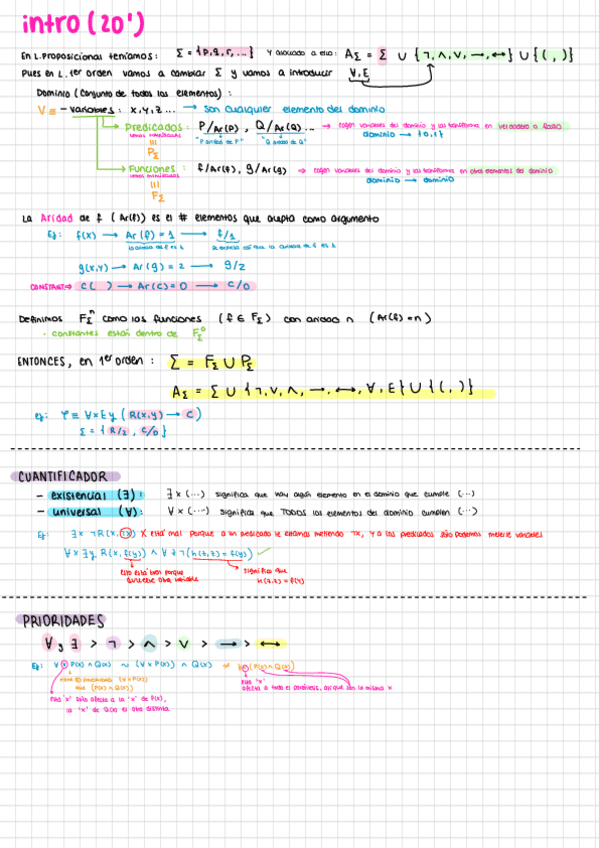 intro (20')
En L.proposicional teníamos: Σ = {p,q,r,...} Y asociado a ello: AΣ = Σ ∪ {¬,∧,∨,→,↔} ∪ {(,)}
Pues en L. 1er orden vamos a cambiar Σ y vamos a introducir ∀,E
Dominio (conjunto de todos los elementos):
V ≡ - variables: x,y,z... → son cualquier elemento del dominio
Predicados: P/Ar(P), Q/Ar(Q)... → cogen variables del dominio y las transforma en verdadero o falso
"P aridad de P" "Q aridad de Q" dominio → {0,1}
III
PΣ
Funciones: f/Ar(f), g/Ar(g) → cogen variables del dominio y las transforman en otros elementos del dominio
dominio → dominio
III
FΣ
La Aridad de f (Ar(f)) es el # elementos que acepta como argumento
Ej: f(x) → Ar(f) = 1 → f/1
la aridad de f es 1
g(x,y) → Ar(g) = 2 → g/2
CONSTANT → c( ) → Ar(c) = 0 → c/0
Definimos FΣⁿ como las funciones (f ∈ FΣ) con aridad n (Ar(f)=n)
· constantes están dentro de FΣ⁰
ENTONCES, en 1er orden: Σ = FΣ ∪ PΣ
AΣ = Σ ∪ {¬,∨,∧,→,↔,∀,E} ∪ {(,)}
ej: φ ≡ ∀xEy (R(x,y) → c)
Σ = {R/2, c/0}
CUANTIFICADOR
- existencial (∃): ∃x(...) significa que hay algún elemento en el dominio que cumple (...)
- universal (∀): ∀x(...) significa que TODOS los elementos del dominio cumplen (...)
Ej: ∃x ¬R(x,¬x) X está mal porque a un predicado le estamos metiendo ¬x, y a los predicados sólo podemos meterle variables
∀x∃y R(x,f(y)) ∧ ∀z¬(h(z,z)=f(y)) ✓
esto está bien porque
devuelve otra variable
significa que
h(z,z) = f(y)
PRIORIDADES
∀ y ∃ > ¬ > ∧ > ∨ > → > ↔
Ej: ∀xP(x)∧Q(x) ~ (∀xP(x)) ∧ Q(x) ≠ ∀x(P(x)∧Q(x))
(∀xP(x))
que (P(x)∧Q(x))
esta 'x' sólo afecta a la 'x' de P(x),
la 'x' de Q(x) es otra distinta
esta 'x'
afecta a todo el paréntesis, así que son la misma x